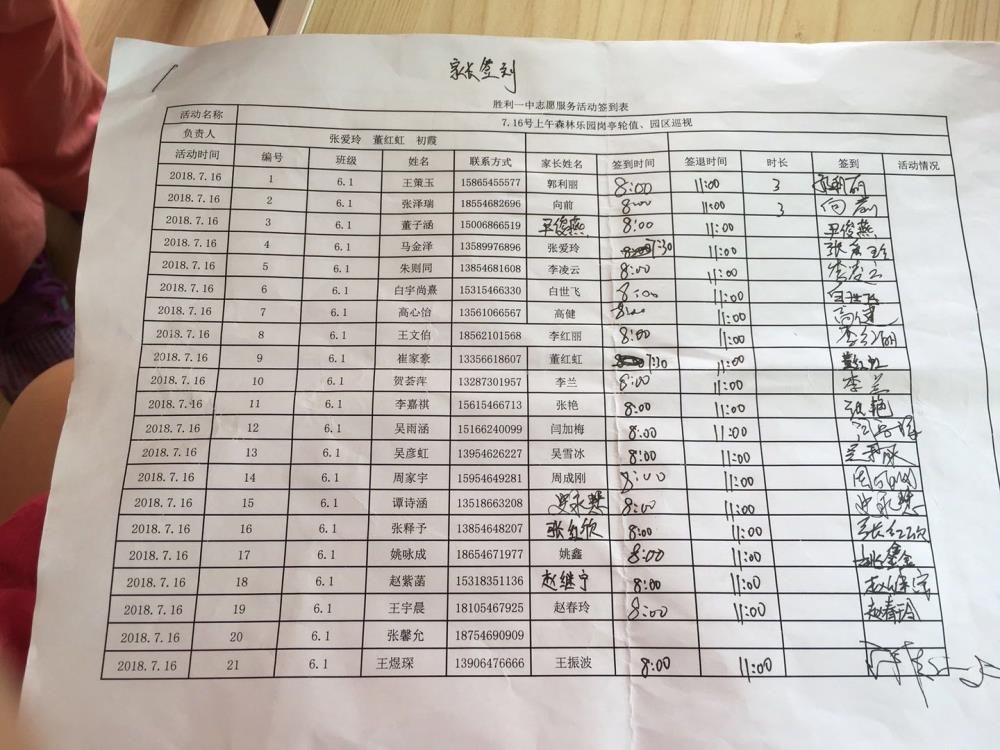 家长签到
胜利一中志愿服务活动签到表
活动名称 7.16号上午森林乐园岗亭轮值、园区巡视
负责人 张爱玲 董红虹 初霞
活动时间 编号 班级 姓名 联系方式 家长姓名 签到时间 签退时间 时长 签到 活动情况
2018.7.16 1 6.1 王策玉 15865455577 郭利丽 8:00 11:00 3 郭利丽
2018.7.16 2 6.1 张泽瑞 18554682696 向前 8:00 11:00 3 向前
2018.7.16 3 6.1 董子涵 15006866519 尹俊燕 8:00 11:00 尹俊燕
2018.7.16 4 6.1 马金泽 13589976896 张爱玲 7:30 11:00 张爱玲
2018.7.16 5 6.1 朱则同 13854681608 李凌云 8:00 11:00 李凌云
2018.7.16 6 6.1 白宇尚熹 15315466330 白世飞 8:00 11:00 白世飞
2018.7.16 7 6.1 高心怡 13561066567 高健 8:00 11:00 高健
2018.7.16 8 6.1 王文伯 18562101568 李红丽 8:00 11:00 李红丽
2018.7.16 9 6.1 崔家豪 13356618607 董红虹 7:30 11:00 董红虹
2018.7.16 10 6.1 贺荟萍 13287301957 李兰 8:00 11:00 李兰
2018.7.16 11 6.1 李嘉祺 15615466713 张艳 8:00 11:00 张艳
2018.7.16 12 6.1 吴雨涵 15166240099 闫加梅 8:00 11:00 闫加梅
2018.7.16 13 6.1 吴彦虹 13954626227 吴雪冰 8:00 11:00 吴雪冰
2018.7.16 14 6.1 周家宇 15954649281 周成刚 8:00 11:00 周成刚
2018.7.16 15 6.1 谭诗涵 13518663208 8:00 11:00
2018.7.16 16 6.1 张释予 13854648207 张红欣 8:00 11:00 张红欣
2018.7.16 17 6.1 姚咏成 18654671977 姚鑫 8:00 11:00 姚鑫
2018.7.16 18 6.1 赵紫菡 15318351136 赵继宁 8:00 11:00 赵继宁
2018.7.16 19 6.1 王宇晨 18105467925 赵春玲 8:00 11:00 赵春玲
2018.7.16 20 6.1 张馨允 18754690909
2018.7.16 21 6.1 王煜琛 13906476666 王振波 8:00 11:00